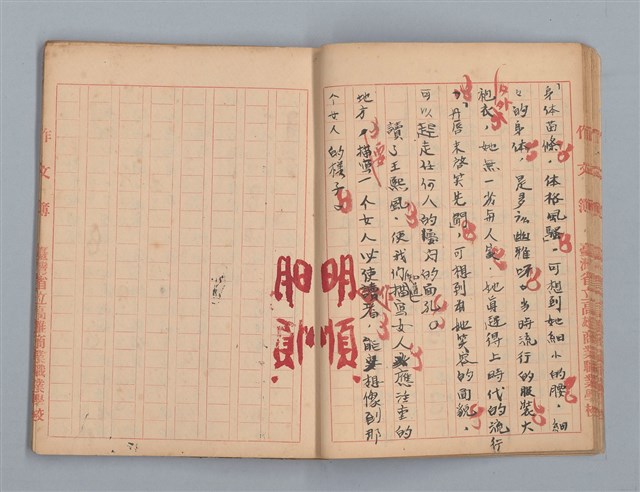 身体苗條，体格風騷，可想到她細小的腰，細
々的身体，是多么幽雅呀。当時流行的服裝大
袍衣，她無一為每人
時代的流行
丹唇未啟笑先聞，可想到看她笑容的面貌，
可以
走任何人的
的面孔。
讀了王熙鳳，便我們知道描寫女人應注重的
地方。描寫一个女人以使讀者，能想像到那
个女人的樣子。
明順
明順
作文簿
臺灣省立高雄商業職業學校
作文簿
臺灣省立高雄商業職業學校